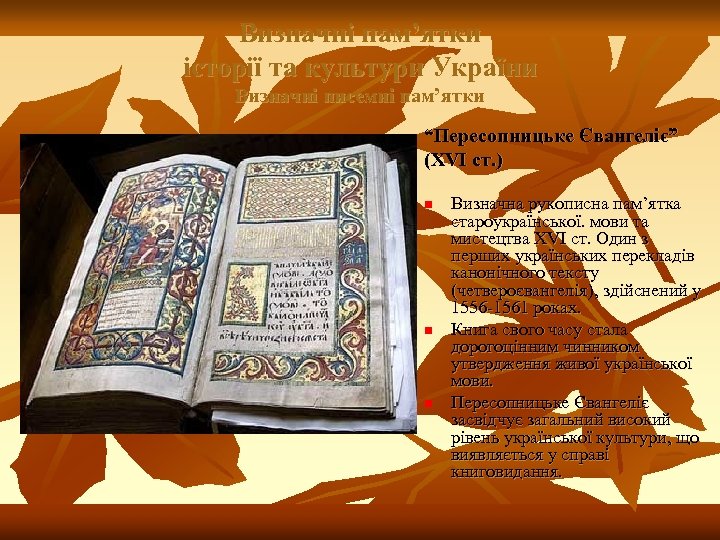 Визначні пам’ятки
історії та культури України
Визначні писемні пам’ятки
“Пересопницьке Євангеліє”
(XVI ст. )
Визначна рукописна пам’ятка
староукраїнської. мови та
мистецтва XVI ст. Один з
перших українських перекладів
канонічного тексту
(четвероєвангелія), здійснений у
1556 -1561 роках.
Книга свого часу стала
дорогоцінним чинником
утвердження живої української
мови.
Пересопницьке Євангеліє
засвідчує загальний високий
рівень української культури, що
виявляється у справі
книговидання.